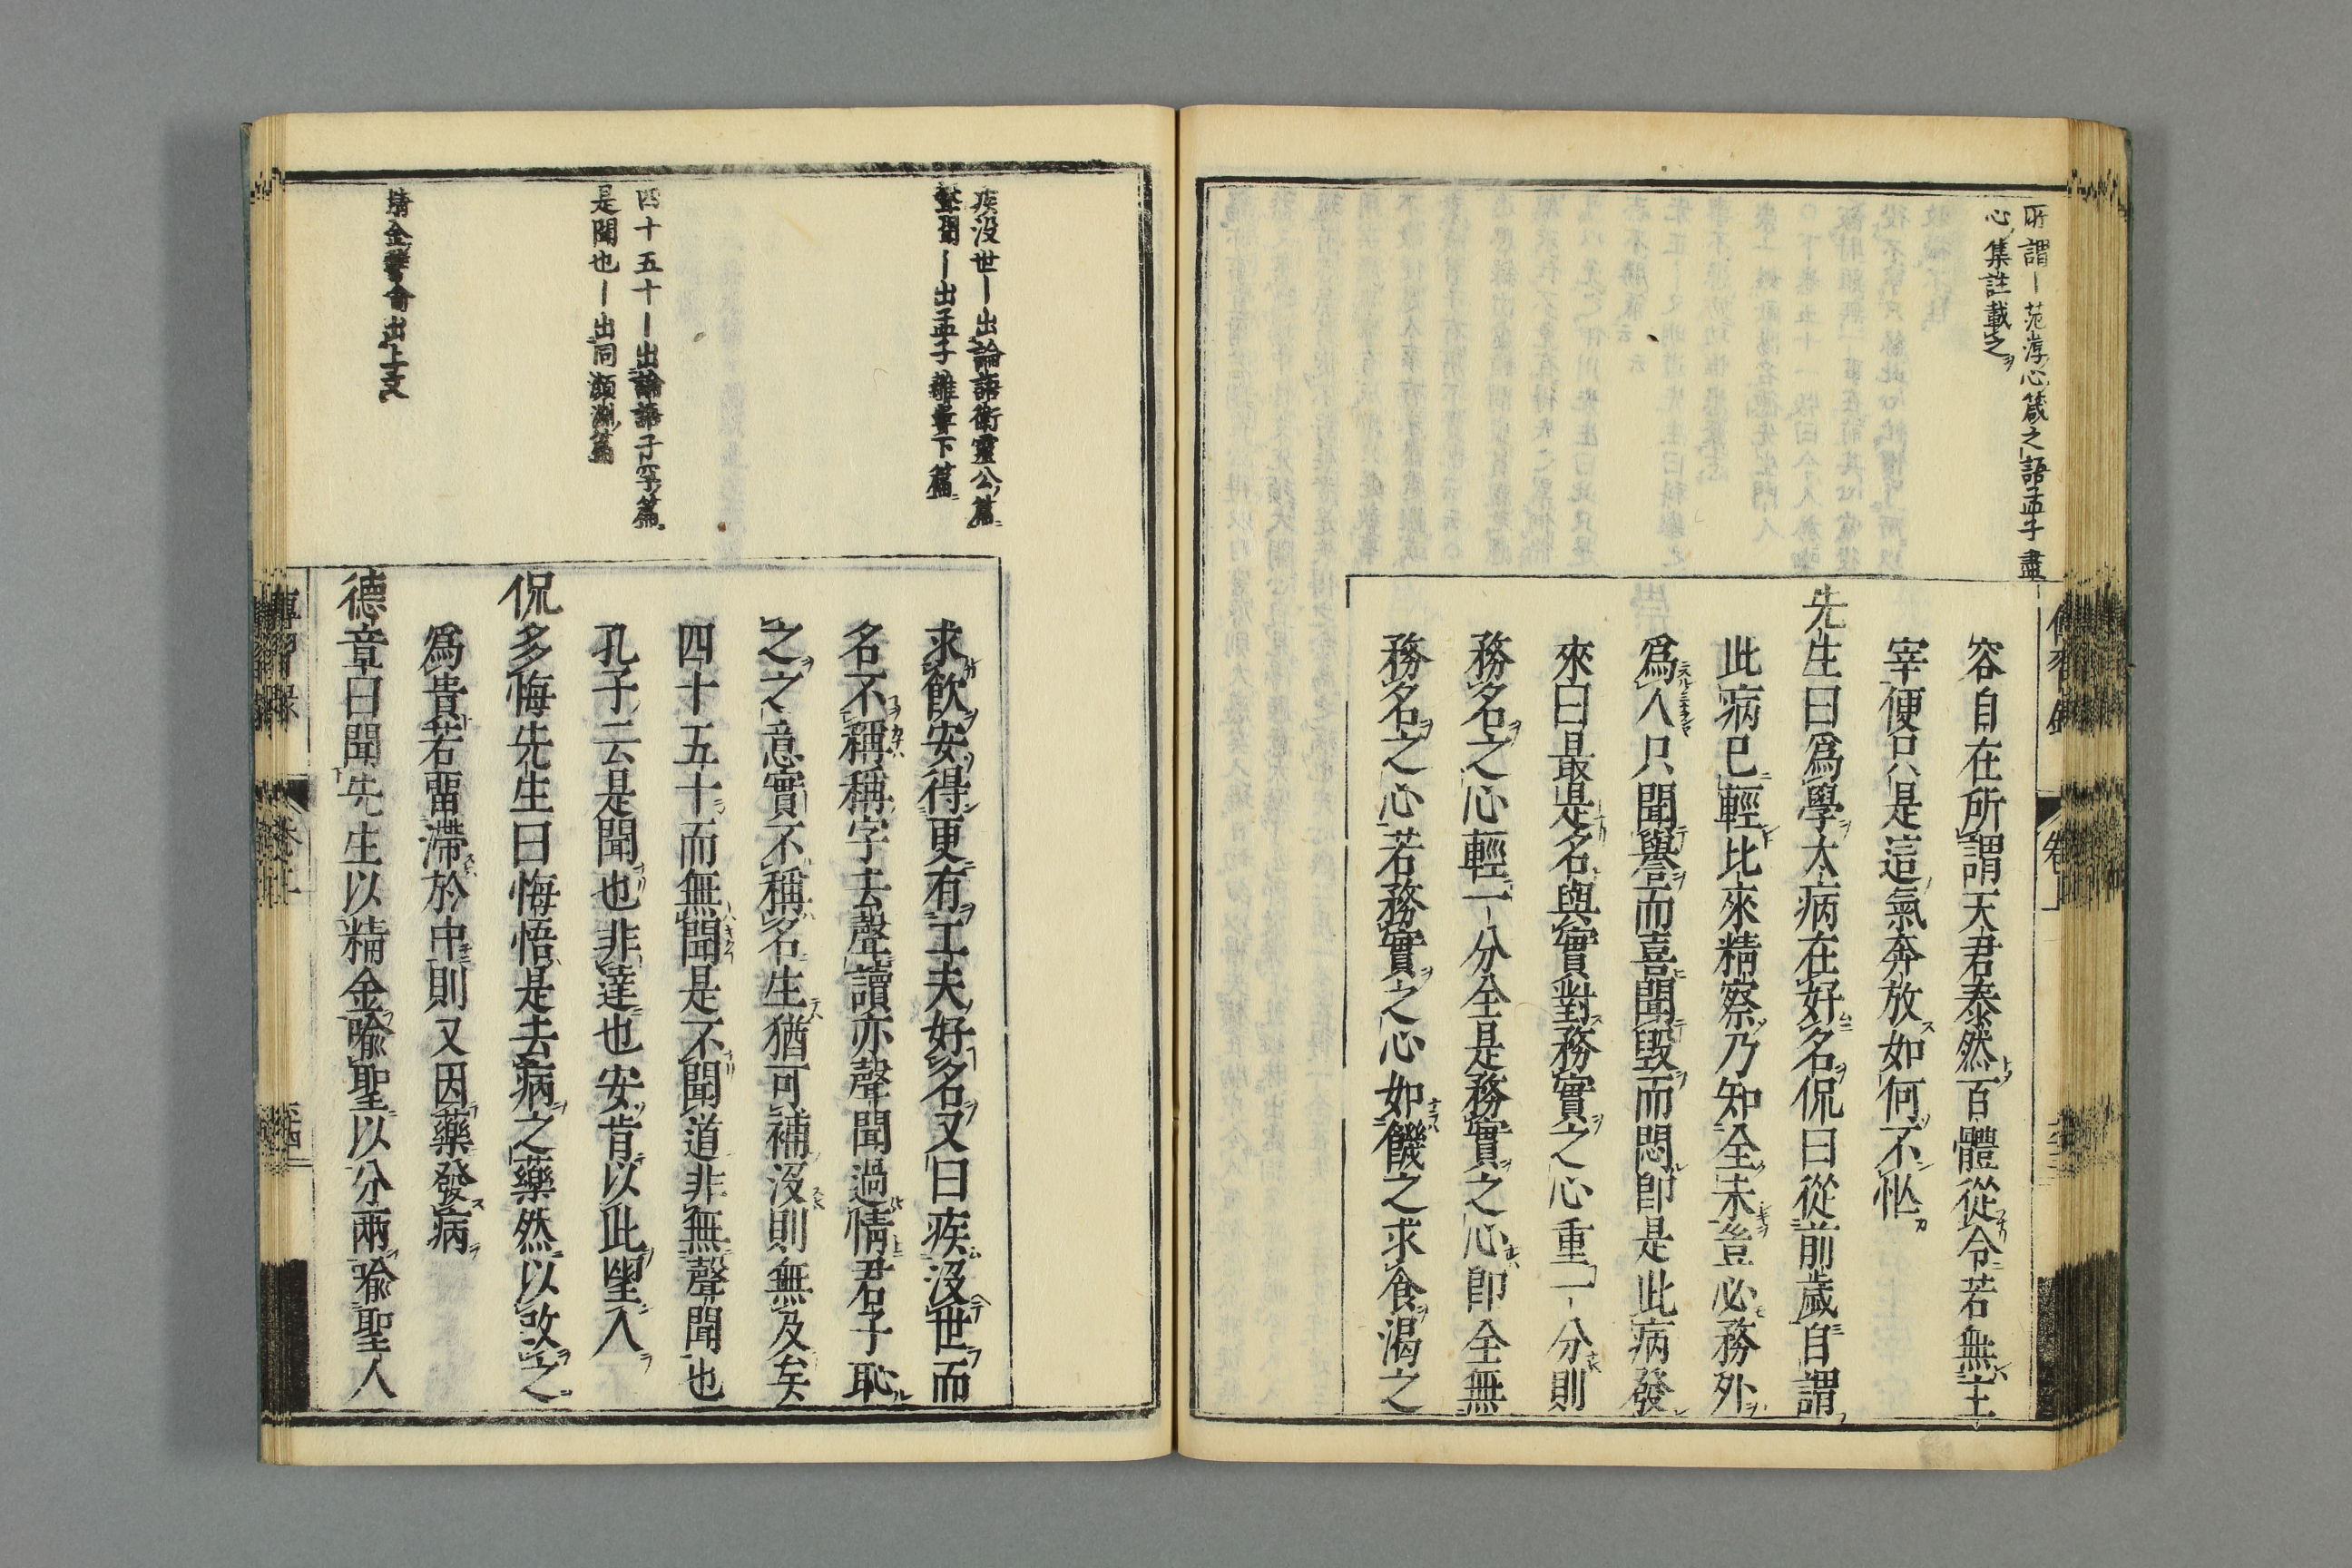 所謂ー范淳心箴之語孟子盡
心集註載之
容自在所謂天君泰然百體從令若無主
宰便只是這氣奔放如何不忙
先生曰爲學太病在好名侃曰從前歲自謂
此病已輕比來精察乃知全未豈必務外
爲人只聞譽而喜聞毀而悶卽是此病發
來曰最是名與實對務實之心重一分則
務名之心輕一分全是務實之心卽全無
務名之心若務實之心如饑之求食渴之
疾没世ー出論語衛靈公篇
聲聞ー出孟子離婁下篇
四十五十ー出論語子罕篇
是聞也ー出同顏淵篇
精金
出上文
求飮安得更有工夫好名又曰疾沒世而
名不稱稱字去聲讀亦聲聞過情君子恥
之之意實不稱名生猶可補沒則無及矣
四十五十而無聞是不聞道非無聲聞也
孔子云是聞也非達也安肯以此望人
侃多悔先生曰悔悟是去病之藥然以改之
爲貴若畱滯於中則又因藥發病
德章曰聞先生以精金喩聖以分兩喩聖人